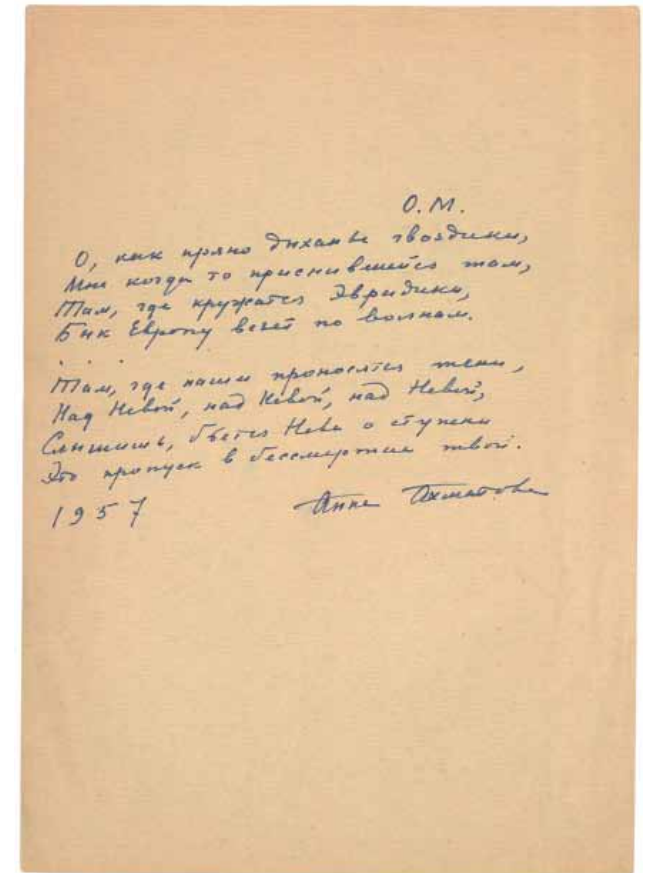 О.М.
О, как пряно дыханье гвоздики,
Мне когда то приснившейся там,
Там, где кружатся Эвридики,
Бык Европу везет по волнам.
. . .
Там, где наши проносятся тени,
Над Невой, над Невой, над Невой,
Слышишь, бьется Нева о ступени
Это пропуск в бессмертие твой.
1957 Анна Ахматова